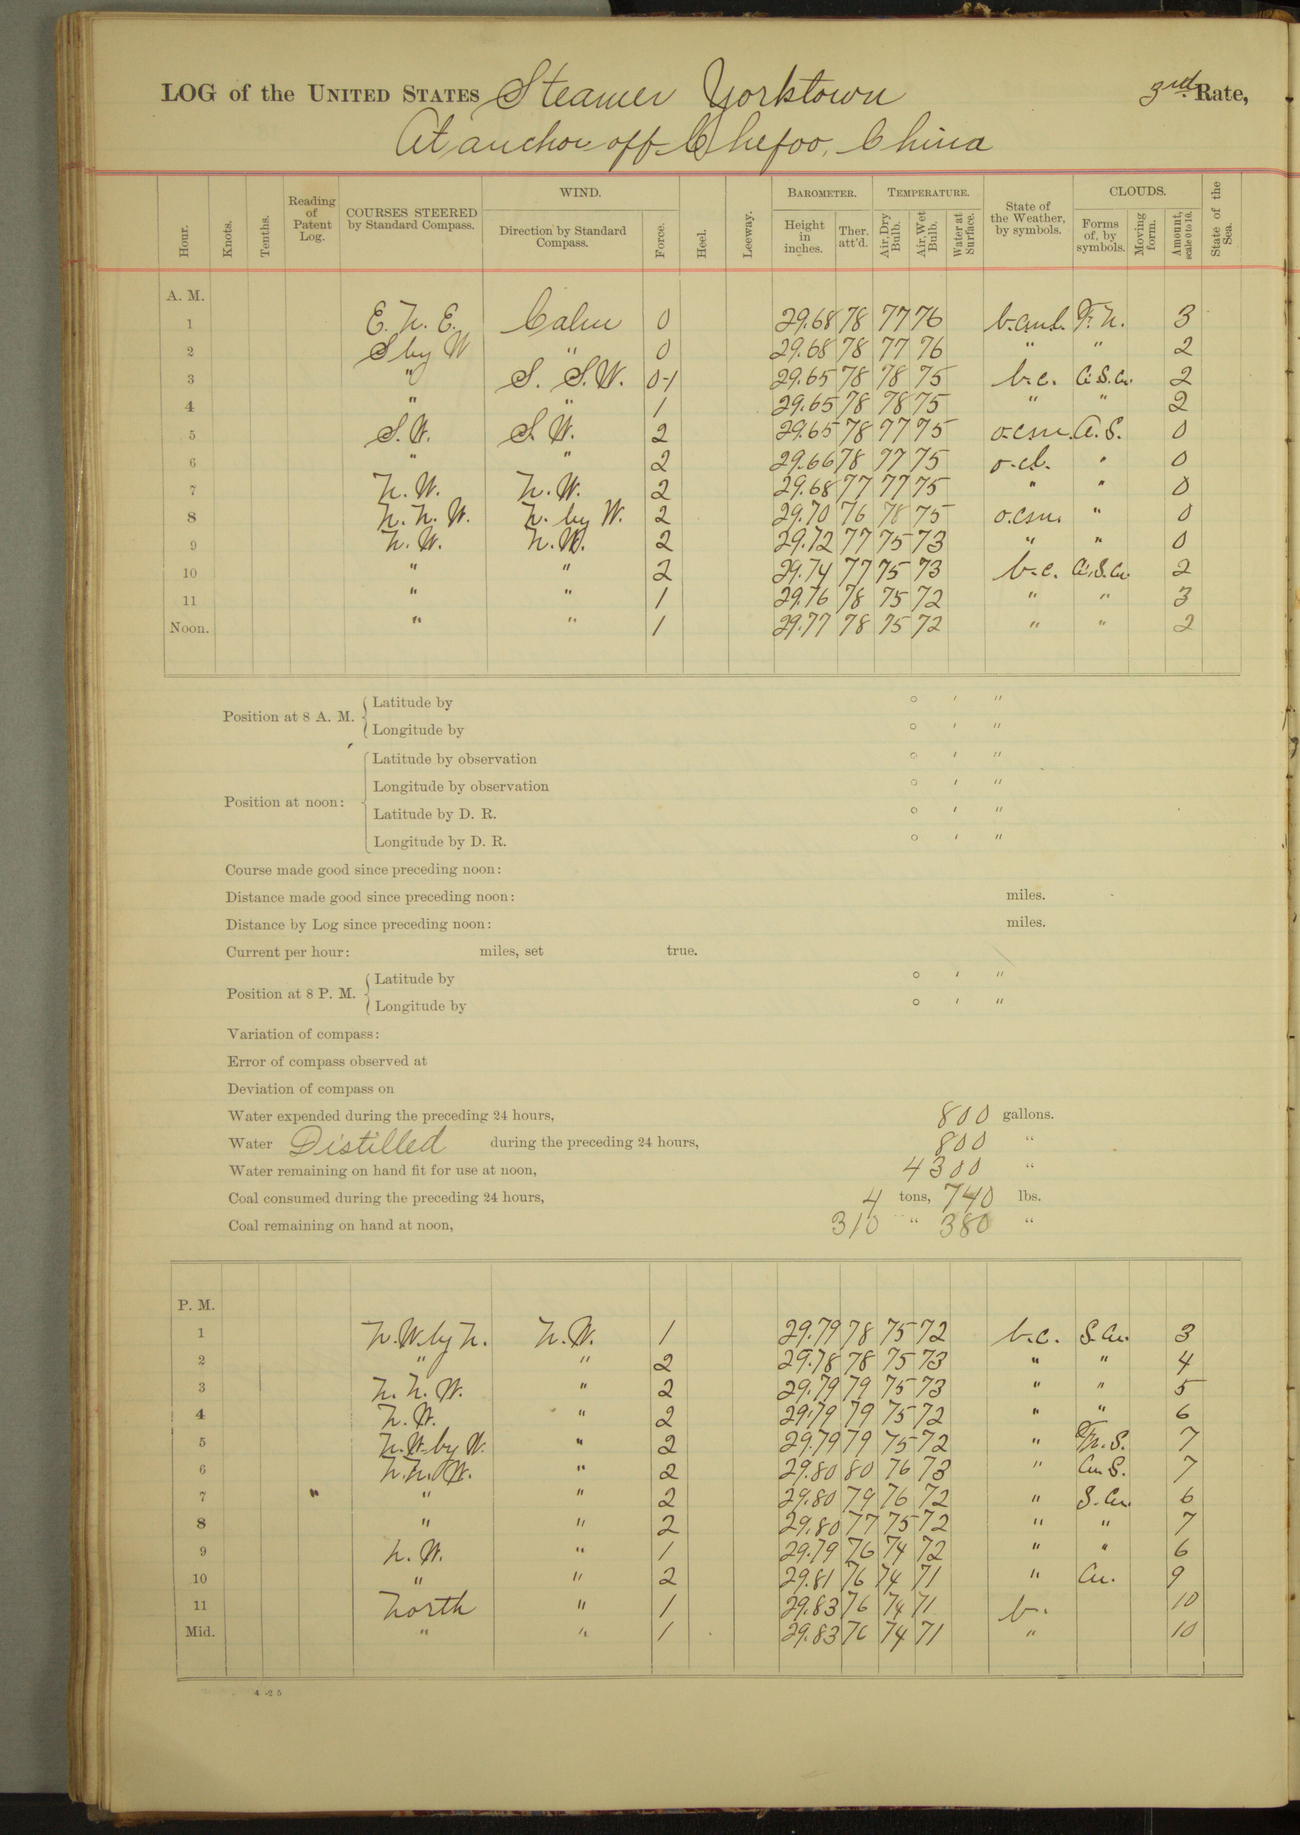 LOG of the UNITED STATES Steamer Yorktown 3rd Rate,
At anchor off Chefoo, China
Hour. Knots. Tenths. Reading of Patent Log. COURSES STEERED by Standard Compass. WIND. Direction by Standard Compass. Force. Heel. Leeway. BAROMETER. Height in inches. Ther. att'd. TEMPERATURE. Air, Dry Bulb. Air, Wet Bulb. Water at Surface. State of the Weather, by symbols. CLOUDS. Forms of, by symbols. Moving form. Amount, scale 0 to 10. State of the Sea.
A. M.
1 E. N. E. Calm 0 29.68 78 77 76 3
2 S by W " 0 29.68 78 77 76 " " 2
3 " S. S.W. 0-1 29.65 78 78 75 b.c. Ci.S.Cu. 2
4 " " 1 29.65 78 78 75 " " 2
5 S.W. S.W. 2 29.65 78 77 75 o.c.m. 0
6 " " 2 29.66 78 77 75 " 0
7 N.W. N.W. 2 29.68 77 77 75 " " 0
8 N. N. W. N. by W. 2 29.70 76 78 75 o.c.m. " 0
9 N.W. N.W. 2 29.72 77 75 73 " " 0
10 " " 2 29.74 77 75 73 b.c. Ci.S.Cu. 2
11 " " 1 29.76 78 75 72 " " 3
Noon. " " 1 29.77 78 75 72 " " 2
Position at 8 A. M. Latitude by ° ' "
Longitude by ° ' "
Position at noon: Latitude by observation ° ' "
Longitude by observation ° ' "
Latitude by D. R. ° ' "
Longitude by D. R. ° ' "
Course made good since preceding noon:
Distance made good since preceding noon: miles.
Distance by Log since preceding noon: miles.
Current per hour: miles, set true.
Position at 8 P. M. Latitude by ° ' "
Longitude by ° ' "
Variation of compass:
Error of compass observed at
Deviation of compass on
Water expended during the preceding 24 hours, 800 gallons.
Water Distilled during the preceding 24 hours, 800 "
Water remaining on hand fit for use at noon, 4300 "
Coal consumed during the preceding 24 hours, 4 tons, 740 lbs.
Coal remaining on hand at noon, 310 " 380 "
P. M.
1 N.W. by N. N.W. 1 29.79 78 75 72 b.c. S.Cu. 3
2 " " 2 29.78 78 75 73 " " 4
3 N. N. W. " 2 29.79 79 75 73 " " 5
4 N.W. " 2 29.79 79 75 72 " " 6
5 N.W. by W. " 2 29.79 79 75 72 " 7
6 N.N.W. " 2 29.80 80 76 73 " Cu.S. 7
7 " " " 2 29.80 79 76 72 " S.Cu. 6
8 " " 2 29.80 77 75 72 " " 7
9 N.W. " 1 29.79 76 74 72 " " 6
10 " " 2 29.81 76 74 71 " Cu. 9
11 North " 1 29.83 76 74 71 b. 10
Mid. " " 1 29.83 76 74 71 " 10
4-25